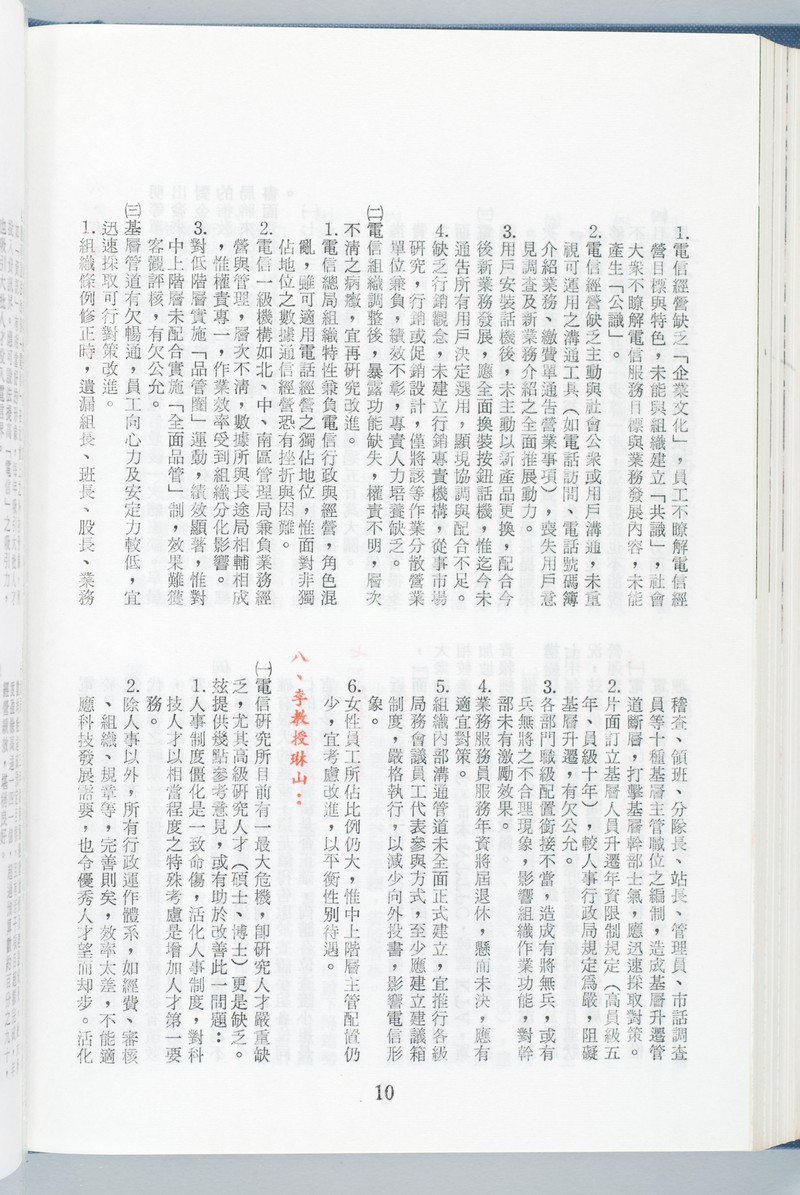 1.電信經營缺乏「企業文化」，員工不瞭解電信經
營目標與特色，未能與組織建立「共識」，社會
大衆不瞭解電信服務目標與業務發展內容，未能
產生「公識」。
2.電信經營缺乏主動與社會公衆或用戶溝通，未重
視可運用之溝通工具（如電話訪問、電話號碼簿
介紹業務、繳費單通告營業事項），喪失用戶意
見調查及新業務介紹之全面推展動力。
3.用戶安裝話機後，未主動以新產品更換，配合今
後新業務發展，應全面換裝按鈕話機，惟迄今未
通告所有用戶決定選用，顯現協調與配合不足。
4.缺乏行銷觀念，未建立行銷專責機構，從事市場
研究，行銷或促銷設計，僅將該等作業分散營業
單位兼負，績效不彰，專責人力培養缺乏。
㈡電信組織調整後，暴露功能缺失，權責不明，層次
不淸之病癥，宜再研究改進。
1.電信總局組織特性兼負電信行政與經營，角色混
亂，雖可適用電話經營之獨佔地位，惟面對非獨
佔地位之數據通信經營恐有挫折與困難。
2.電信一級機構如北、中、南區管理局兼負業務經
營與管理，層次不淸，數據所與長途局相輔相成
，惟權責專一，作業效率受到組織分化影響。
3.對低階層實施「品管圈」運動，績效顯著，惟對
中上階層未配合實施「全面品管」制，效果難獲
客觀評核，有欠公允。
㈢基層管道有欠暢通，員工向心力及安定力較低，宜
迅速採取可行對策改進。
1.組織條例修正時，遺漏組長、班長、股長、業務
稽查、領班、分隊長、站長、管理員、市話調查
員等十種基層主管職位之編制，造成基層升遷管
道斷層，打擊基層幹部士氣，應迅速採取對策。
2.片面訂立基層人員升遷年資限制規定（高員級五
年、員級十年），較人事行政局規定爲嚴，阻礙
基層升遷，有欠公允。
3.各部門職級配置銜接不當，造成有將無兵，或有
兵無將之不合理現象，影響組織作業功能，對幹
部未有激勵效果。
4.業務服務員服務年資將屆退休，懸而未決，應有
適宜對策。
5.組織內部溝通管道未全面正式建立，宜推行各級
局務會議員工代表參與方式，至少應建立建議箱
制度，嚴格執行，以減少向外投書，影響電信形
象。
6.女性員工所佔比例仍大，惟中上階層主管配置仍
少，宜考慮改進，以平衡性別待遇。
八、李教授琳山：
㈠電信研究所目前有一最大危機，卽研究人才嚴重缺
乏，尤其高級研究人才（碩士、博士）更是缺乏。
玆提供幾點參考意見，或有助於改善此一問題：
1.人事制度僵化是一致命傷，活化人事制度，對科
技人才以相當程度之特殊考慮是增加人才第一要
務。
2.除人事以外，所有行政運作體系，如經費、審核
、組織、規章等，完善則矣，效率太差，不能適
應科技發展需要，也令優秀人才望而却步。活化
10